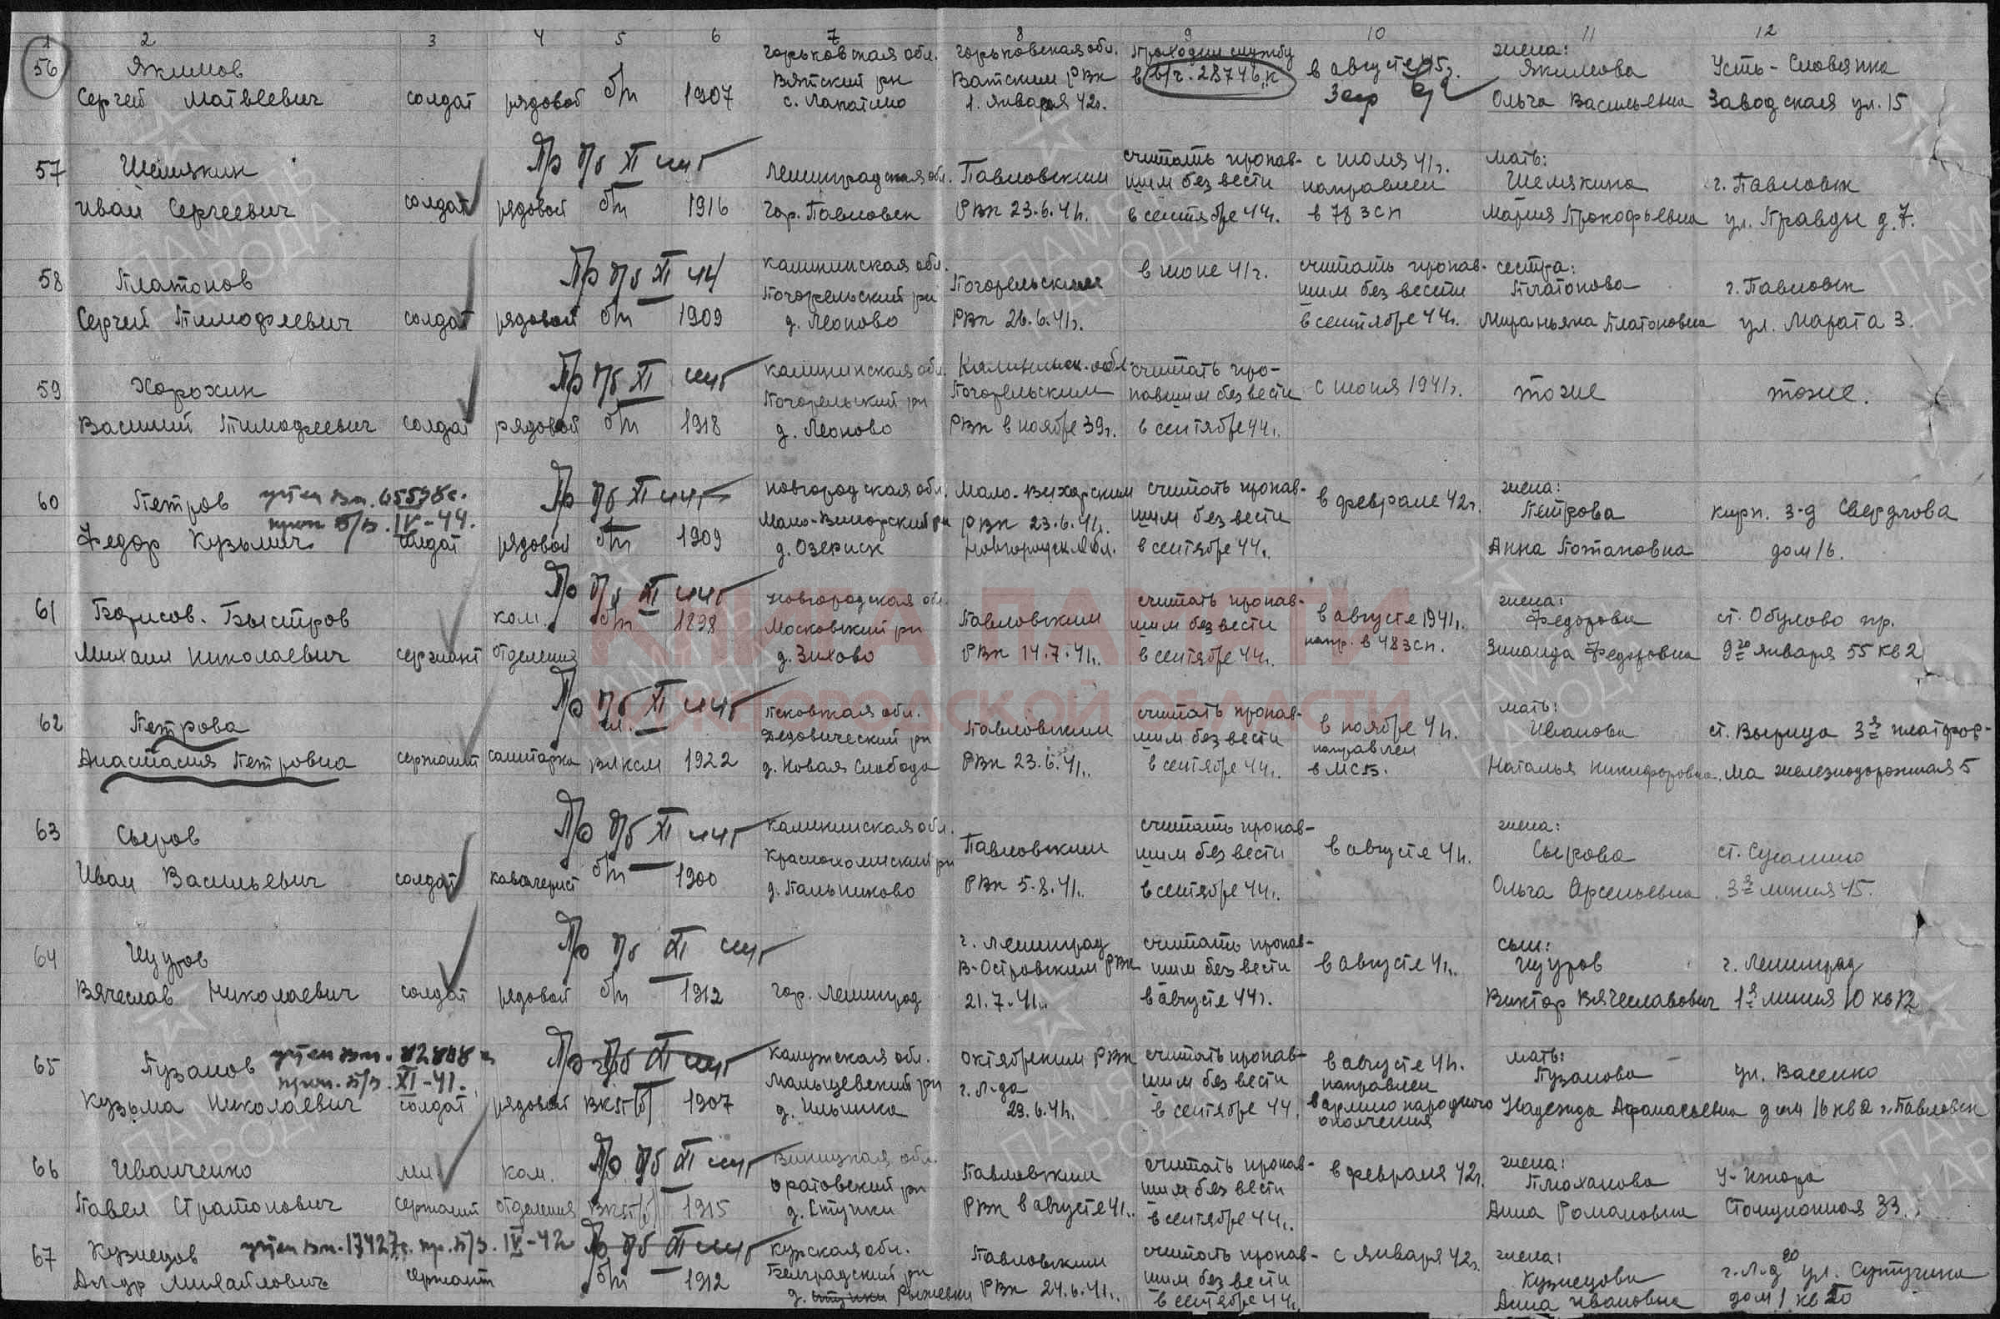 1 2 3 4 5 6 7 8 9 10 11 12
56 Якимов Сергей Матвеевич солдат рядовой б/п 1907
Горьковская обл. Вятский рн с. Лапатино
Горьковская обл. Ватским РВК 1. января 42г.
Проходил службу в в/ч. 28746, к
в августе 45г.
жена: Якимова Ольга Васильевна
Усть-Славянка Заводская ул. 15
57 Шемякин Иван Сергеевич солдат рядовой б/п 1916
Пр п/б XI
Ленинградская обл. гор. Павловск
Павловским РВК 23.6.41.
считать пропавшим без вести в сентябре 44г.
с июля 41г. направлен в 78 зсп
мать: Шемякина Мария Прокофьевна
г. Павловск ул. Правды д. 7.
58 Платонов Сергей Тимофеевич солдат рядовой б/п 1909
Пр п/б XI 44
Калининская обл. Погорельский рн д. Леоново
Погорельским РВК 26.6.41г.
в июне 41г.
считать пропавшим без вести в сентябре 44г.
сестра: Платонова Платоновна
г. Павловск ул. Марата 3.
59 Хорохин Василий Тимофеевич солдат рядовой б/п 1918
Пр п/б XI
Калининская обл. Погорельский рн д. Леоново
Калининск. обл. Погорельским РВК в ноябре 39г.
считать пропавшим без вести в сентябре 44г.
с июня 1941г.
тоже
тоже.
60 Петров Федор Кузьмич солдат рядовой б/п 1909
Пр п/б XI
Новгородская обл. Мало-Вишерский рн д. Озериск
Мало-Вишерским РВК 23.6.41г. Новгородск. обл.
считать пропавшим без вести в сентябре 44г.
в феврале 42г.
жена: Петрова Анна Потаповна
кирп. з-д Свердлова дом 16.
61 Борисов-Быстров Михаил Николаевич сержант ком. отделения б/п 1898
Пр п/б XI
Новгородская обл. Московский рн д. Зихово
Павловским РВК 14.7.41.
считать пропавшим без вести в сентябре 44г.
в августе 1941г. напр. в 48 зсп.
жена: Федорова Зинаида Федоровна
ст. Обухово пр. 9го января 55 кв 2
62 Петрова Анастасия Петровна сержант санитарка чл. ВЛКСМ 1922
Пр п/б XI
Псковская обл. Дедовический рн д. Новая Слобода
Павловским РВК 23.6.41.
считать пропавшим без вести в сентябре 44г.
в ноябре 41. направлен в МСБ.
мать: Иванова Наталья Никифоровна
ст. Вырица 3я платформа железнодорожная 5
63 Сыров Иван Васильевич солдат кавалерист б/п 1900
Пр п/б XI
Калининская обл. Краснохолмский рн д. Пальниково
Павловским РВК 5.8.41.
считать пропавшим без вести в сентябре 44г.
в августе 41.
жена: Сырова Ольга Арсеньевна
3я линия 45.
64 Щуров Вячеслав Николаевич солдат рядовой б/п 1912
Пр п/б XI
гор. Ленинград
г. Ленинград В-Островским РВК 21.7.41.
считать пропавшим без вести в августе 44г.
в августе 41.
сын: Щуров Виктор Вячеславович
г. Ленинград 1я линия 10 кв 12
65 Пузанов Кузьма Николаевич солдат рядовой ВКП(б) 1907
Пр п/б XI
Калужская обл. д. Ильинка
Октябрским РВК г. Л-да 29.6.41.
считать пропавшим без вести в сентябре 44.
в августе 41. направлен в армию народного ополчения
мать: Пузанова Надежда Афанасьевна
ул. Васенко дом 16 кв 2 г. Павловск
66 Иванченко Павел Стратонович мл. сержант ком. отделения ВКП(б) 1915
Пр п/б XI
Виницкая обл. Оратовский рн
Павловским РВК в августе 41.
считать пропавшим без вести в сентябре 44.
в феврале 42г.
жена: Плоханова Анна Романовна
У-Ижора Станционная 33.
67 Кузнецов Ал-др Михайлович сержант б/п 1912
Пр п/б XI
Курская обл. Белградский рн
Павловским РВК 24.6.41.
считать пропавшим без вести в сентябре 44г.
с января 42г.
жена: Кузнецова Анна Ивановна
г. Л-д 20 дом 1 кв
КНИГА ПАМЯТИ
НИЖЕГОРОДСКОЙ ОБЛАСТИ
ПАМЯТЬ НАРОДА